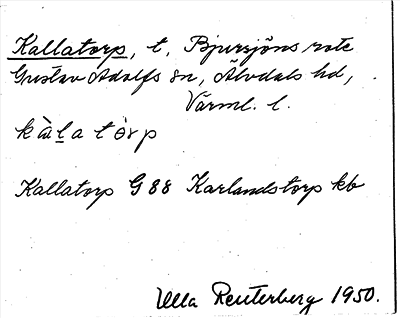 Kallatorp, t, Bjursjöns rote
Gustav Adolfs sn, Älvdals hd,
Värml. l.
kàlatòrp
Kallatorp G88 Karlandstorp kb
Ulla Reuterberg 1950.